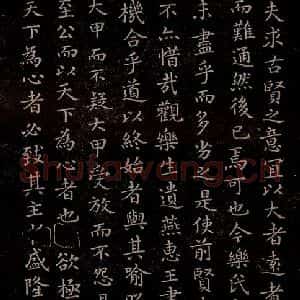 夫求古賢之意宜以大者遠者
而難通然後已焉可也今樂氏
未盡乎而多劣之是使前賢
不亦惜哉觀樂生遺燕惠王書
機合乎道以終始者與其喻
大甲而不疑大甲受放而不怨是
至公而以天下為心者也欲極
天下為心者必致其主於盛隆
Shufawang.CN